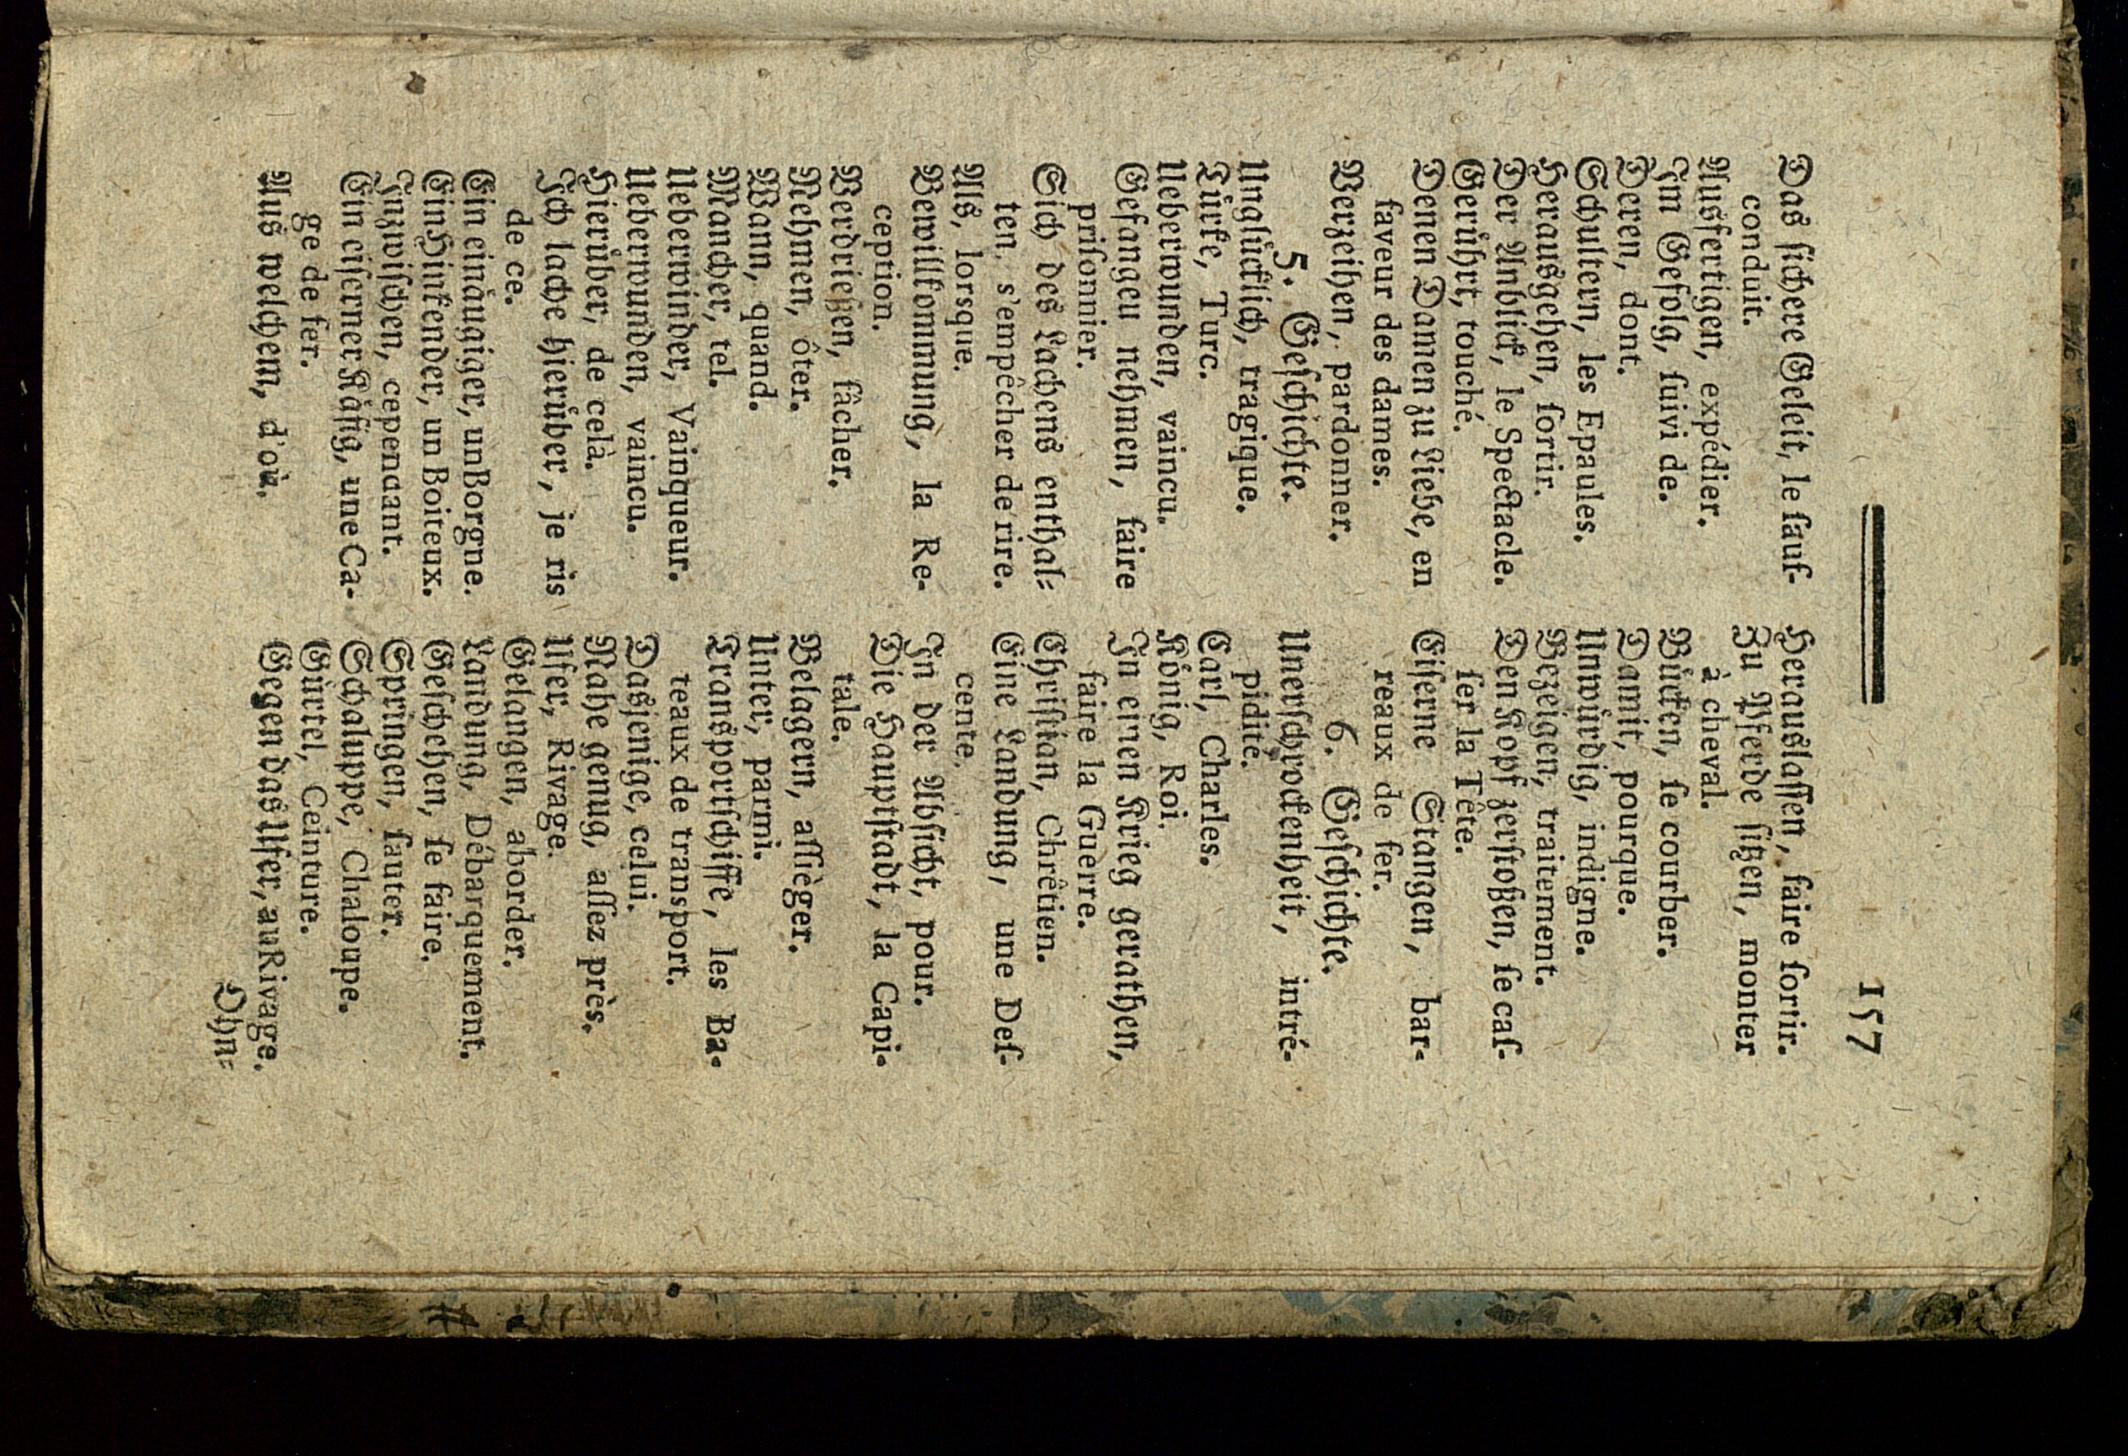 157
Das ſichere Geleit, le ſauf-
conduit.
Ausfertigen, expédier.
Im Gefolg, ſuivi de.
Deren, dont.
Schultern, les Epaules.
Herausgehen, ſortir.
Der Anblick, le Spectacle.
Gerührt, touché.
Denen Damen zu Liebe, en
faveur des dames.
Verzeihen, pardonner.
5. Geſchichte.
Unglücklich, tragique.
Türke, Turc.
Ueberwunden, vaincu.
Gefangen nehmen, faire
priſonnier.
Sich des Lachens enthal-
ten, s'empêcher de rire.
Als, lorsque.
Bewillkommung, la Re-
ception.
Verdrießen, fâcher.
Nehmen, ôter.
Wann, quand.
Mancher, tel.
Ueberwinder, Vainqueur.
Ueberwunden, vaincu.
Hierüber, de celà.
Ich lache hierüber, je ris
de ce.
Ein einäugiger, un Borgne.
Ein Hinkender, un Boiteux.
Inzwiſchen, cependant.
Ein eiſerner Käfig, une Ca-
ge de fer.
Aus welchem, d'où.
Herauslaſſen, faire ſortir.
Zu Pferde ſitzen, monter
à cheval.
Bücken, ſe courber.
Damit, pourque.
Unwürdig, indigne.
Bezeigen, traitement.
Den Kopf zerſtoßen, ſe caſ-
ſer la Tête.
Eiſerne Stangen, bar-
reaux de fer.
6. Geſchichte.
Unerſchrockenheit, intré-
pidité.
Carl, Charles.
König, Roi.
In einen Krieg gerathen,
faire la Guerre.
Chriſtian, Chrêtien.
Eine Landung, une Deſ-
cente.
In der Abſicht, pour.
Die Hauptſtadt, la Capi-
tale.
Belagern, aſſièger.
Unter, parmi.
Transportſchiffe, les Ba-
teaux de transport.
Dasjenige, celui.
Nahe genug, aſſez près.
Ufer, Rivage.
Gelangen, aborder.
Landung, Débarquement.
Geſchehen, ſe faire.
Springen, ſauter.
Schaluppe, Chaloupe.
Gürtel, Ceinture.
Gegen das Ufer, au Rivage.
Ohn-